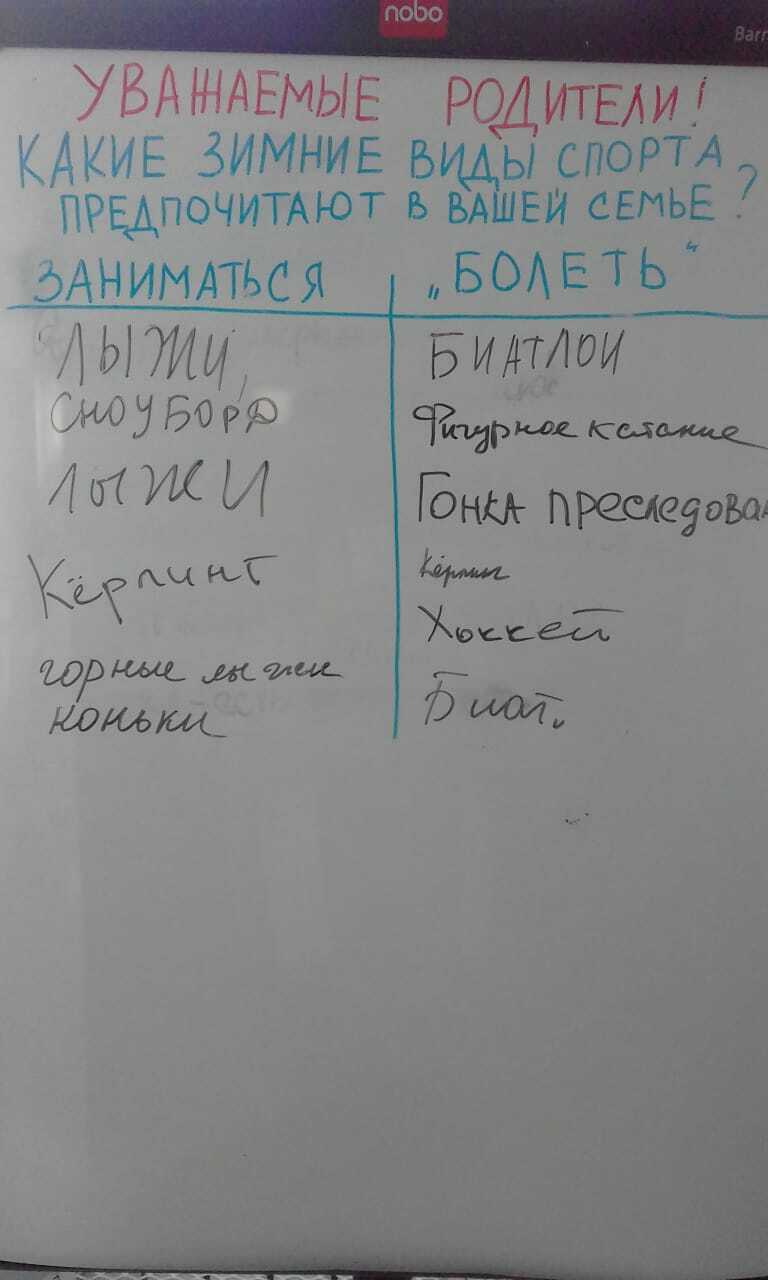 nobo
Barr
УВАЖАЕМЫЕ РОДИТЕЛИ!
КАКИЕ ЗИМНИЕ ВИДЫ СПОРТА
ПРЕДПОЧИТАЮТ В ВАШЕЙ СЕМЬЕ?
ЗАНИМАТЬСЯ
„БОЛЕТЬ“
ЛЫЖИ,
СНОУБОРД
ЛЫЖИ
Кёрлинг
горные лыжи
коньки
БИАТЛОН
Фигурное катание
Гонка преследова
Кёрлинг
Хоккей
Биат.